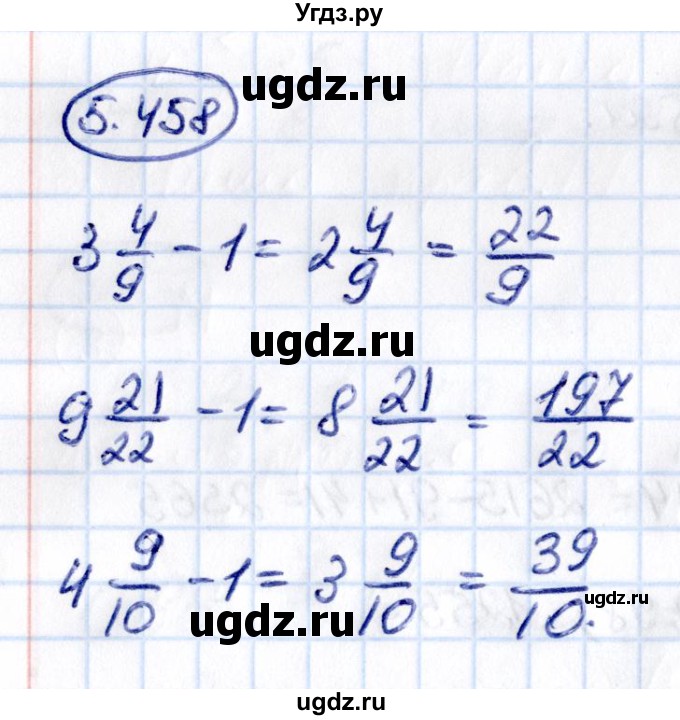 Угдз.ру
ugdz.ru
5.458
3 4/9 - 1 = 2 4/9 = 22/9
ugdz.ru
9 21/22 - 1 = 8 21/22 = 197/22
4 9/10 - 1 = 3 9/10 = 39/10.
ugdz.ru
ugdz.ru
ugdz.ru